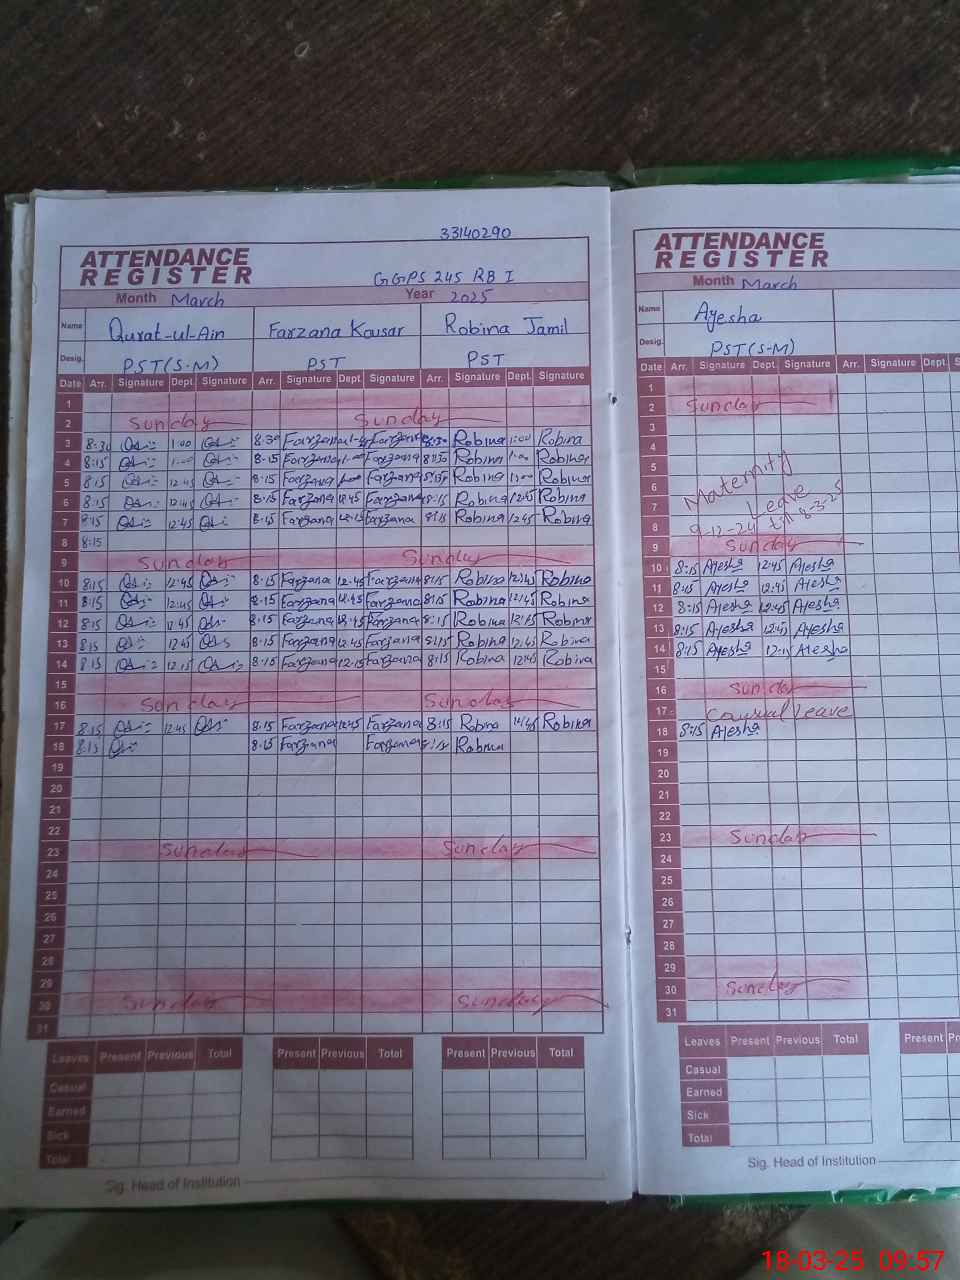 33140290
ATTENDANCE
REGISTER
GGPS 245 RB I
Month March Year 2025
Name Qurat-ul-Ain Farzana Kousar Robina Jamil
Desig. PST(S-M) PST PST
Date Arr. Signature Dept. Signature Arr. Signature Dept. Signature Arr. Signature Dept. Signature
1
2 Sunday Sunday
3 8:30 1:00 8:30 Farzana Farzana 8:30 Robina 1:00 Robina
4 8:15 1:00 8-15 Farzana 1:00 Farzana Robina 1:00 Robina
5 8:15 12:45 8:15 Farzana Farzana Robina Robina
6 8:15 12:45 8-15 Farzana 12:45 Farzana 8:15 Robina 12:45 Robina
7 8:15 12:45 8-15 Farzana 12:15 Farzana 8:15 Robina 12:45 Robina
8 8:15
9 Sunday Sunday
10 8:15 12:45 8-15 Farzana 12:45 Farzana 8:15 Robina 12:45 Robina
11 8:15 12:45 8-15 Farzana 12:45 Farzana 8:15 Robina 12:45 Robina
12 8:15 12:45 8-15 Farzana 12:45 Farzana 8:15 Robina 12:45 Robina
13 8:15 12:45 8-15 Farzana 12:45 Farzana 8:15 Robina 12:45 Robina
14 8:15 12:15 8-15 Farzana 12:15 Farzana 8:15 Robina 12:45 Robina
15
16 Sunday Sunday
17 8:15 12:45 8:15 Farzana 12:45 Farzana 8:15 Robina Robina
18 8:15 8:15 Farzana Farzana Robina
19
20
21
22
23 Sunday Sunday
24
25
26
27
28
29
30 Sunday Sunday
31
Leaves Present Previous Total Present Previous Total Present Previous Total
Casual
Earned
Sick
Total
Sig. Head of Institution
ATTENDANCE
REGISTER
Month March
Name Ayesha
Desig. PST(S-M)
Date Arr. Signature Dept. Signature Arr. Signature Dept. Signature
1
2 Sunday
3
4
5
6 Maternity
7 Leave
8 9-12-24 till 8-3-25
9 Sunday
10 8:15 Ayesha 12:45 Ayesha
11 8:15 Ayesha 12:45 Ayesha
12 8:15 Ayesha 12:45 Ayesha
13 8:15 Ayesha 12:45 Ayesha
14 8:15 Ayesha 12:15 Ayesha
15
16 Sunday
17 Causual leave
18 8:15 Ayesha
19
20
21
22
23 Sunday
24
25
26
27
28
29
30 Sunday
31
Leaves Present Previous Total Present
Casual
Earned
Sick
Total
Sig. Head of Institution
18-03-25 09:57